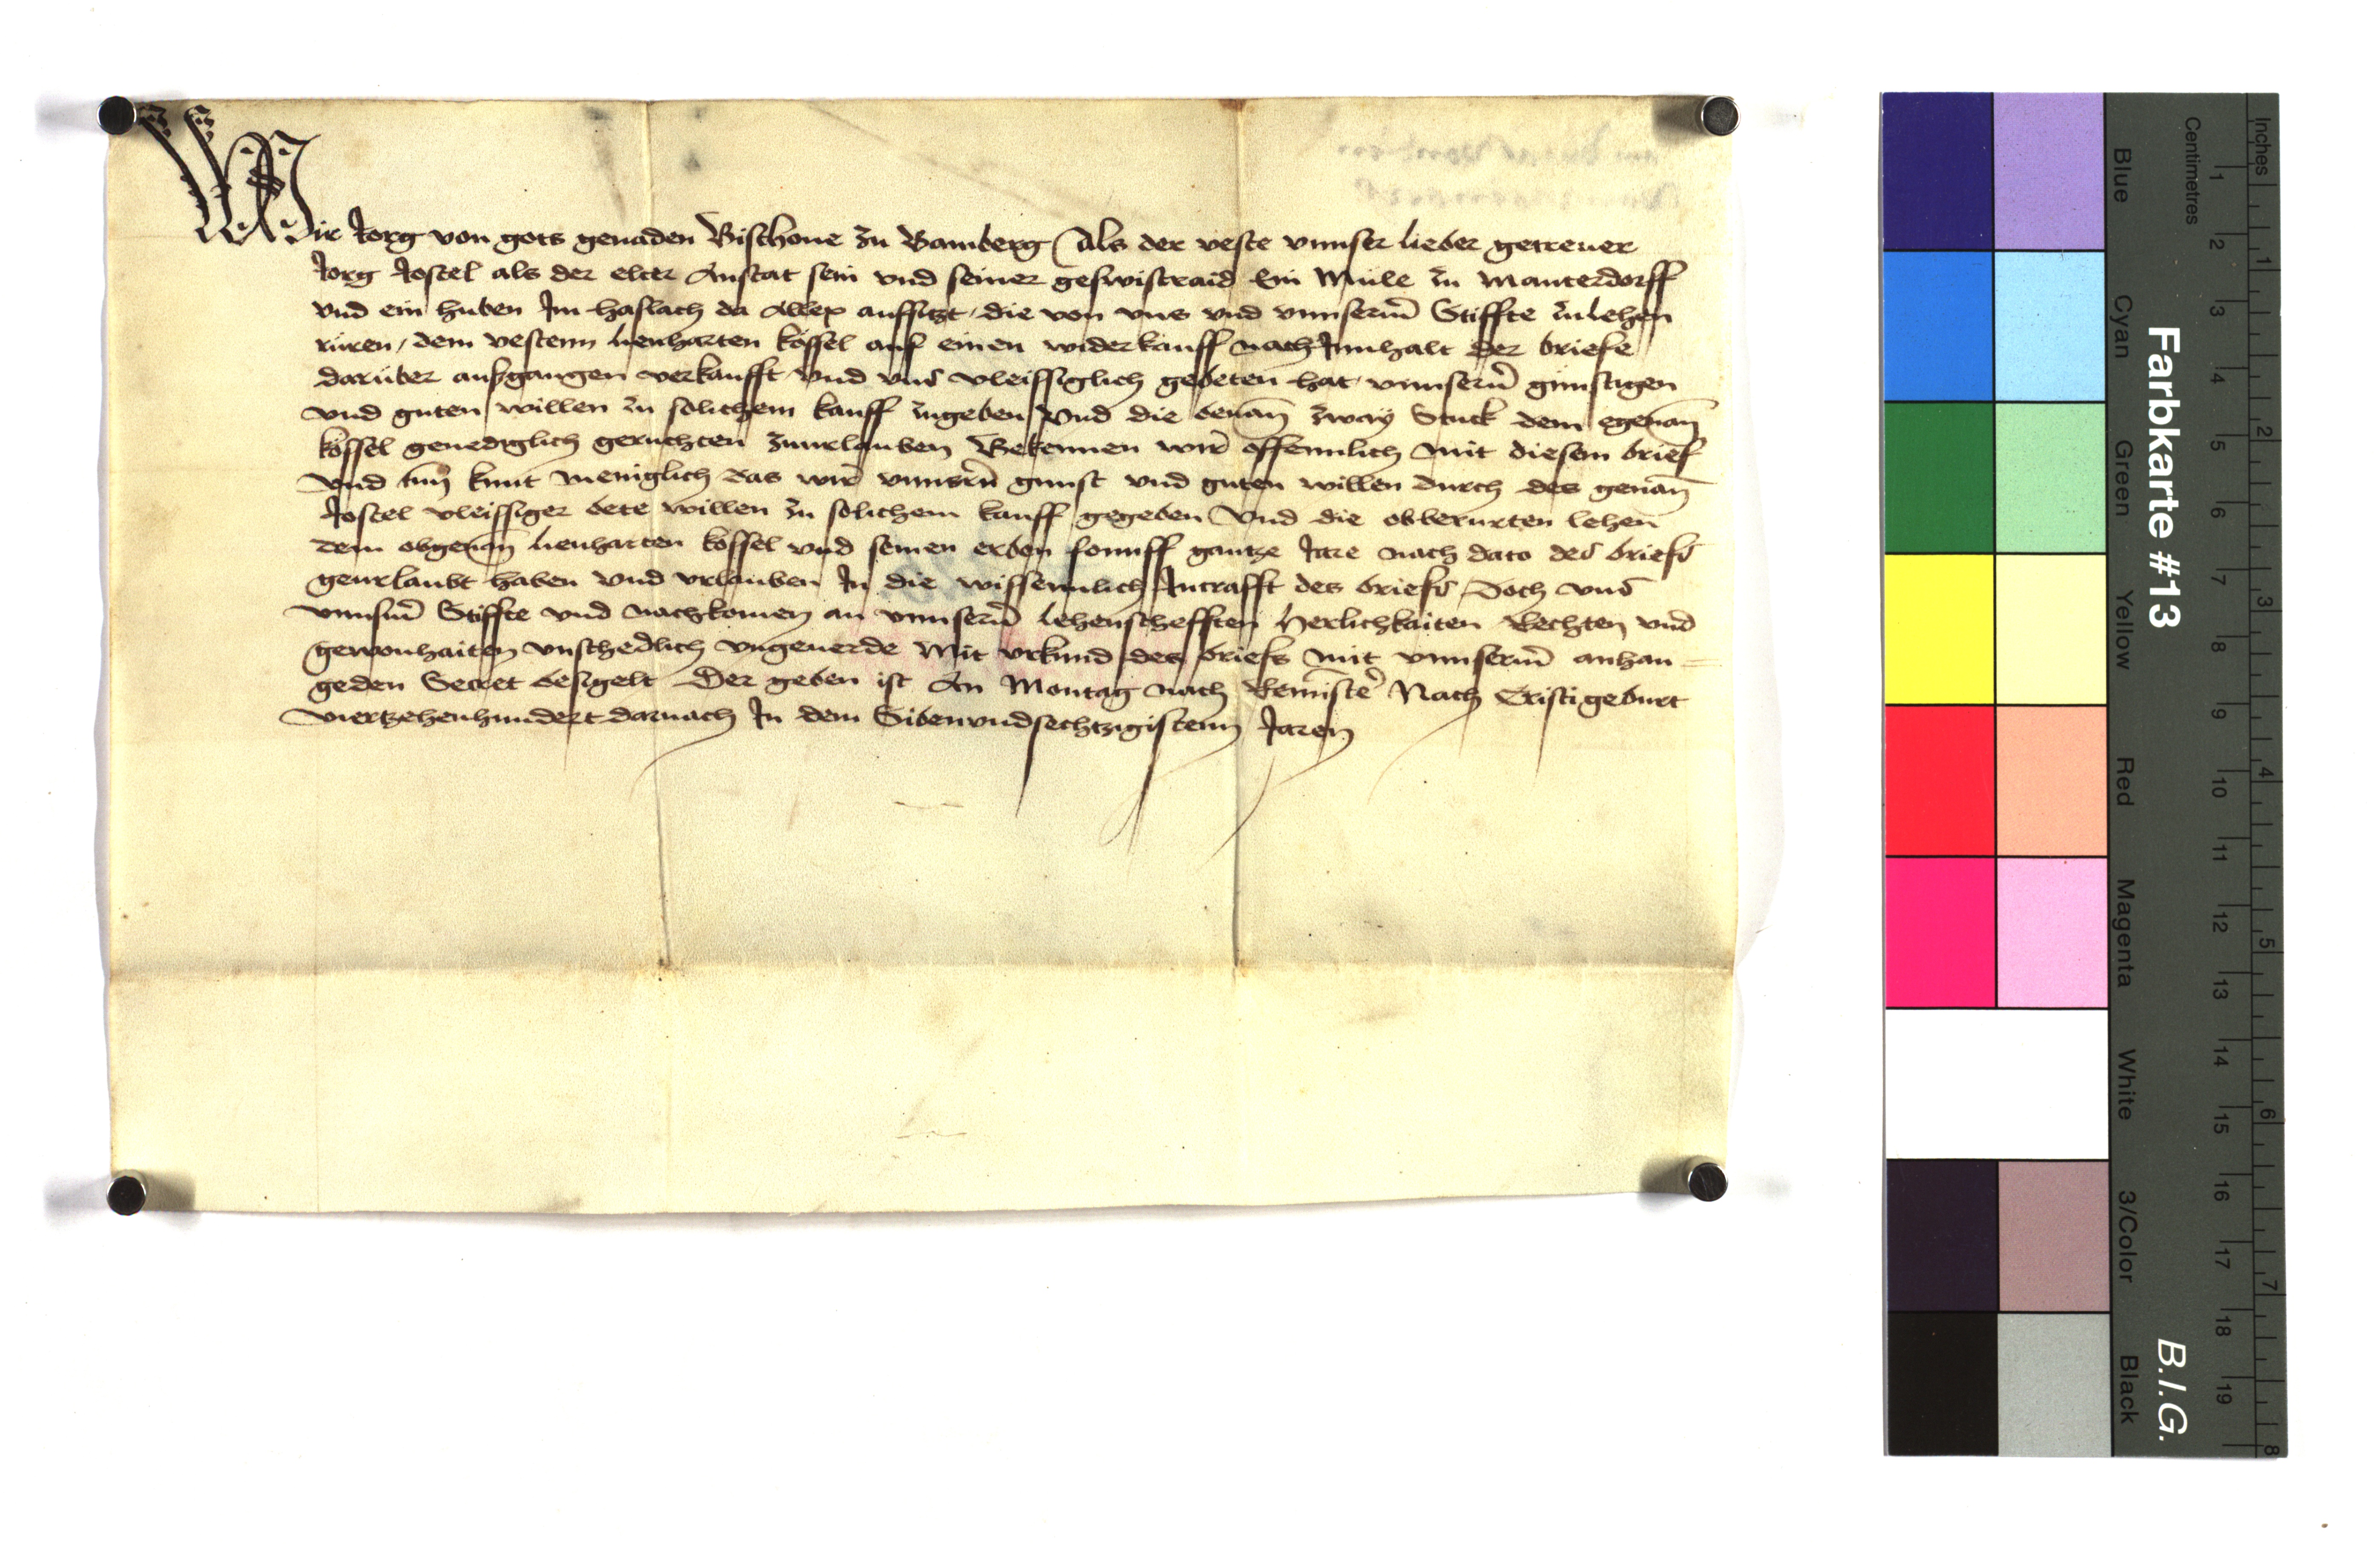 Wir Jorg von gots genaden Bischoue zu Bamberg Als der veste vnnser lieber getreuer
Jorg Jostel als der elter Anstat sein vnd seiner geswistraid Ein Mule zu Mauterdorff
vnd ein huben Im haslach da auffsitzt, die von vns vnd vnnserm̄ Stiffte zulehen
ruren, dem vestenn lienharten kossel auf einen widerkauff nach Innhalt der briefe
daruber auszgangen verkaufft vnd vns vleissiglich gebeten hat vnnsern̄ gunstigen
vnd guten willen zu solichem kauff zugeben vnd die benan̄ zway Stuck dem egenan̄
kossel genediglich geruchten zuurlauben Bekennen wir offennlich mit diesem brief
vnd tun kunt meniglich das wir vnnsern̄ gunst vnd guten willen durch des genan̄
Jostel vleissiger bete willen zu solichem kauff gegeben vnd die obberurten lehen
dem obgenan̄ lienharten kossel vnd seinen erben fonnff gantze Jare nach dato des briefs
geurlaubt haben vnd vrlauben In die wissennlich Incrafft des briefs, Doch vns
vnnsm̄ Stiffte vnd nachkomen an vnnsern̄ lehenschefften herlichkaiten Rechten vnd
gewonhaiten vnschedlich vngeuerde Mit vrkund des briefs mit vnnserm̄ anhan-
geden Secret besigelt Der geben ist An Montag nach Remi͂scē Nach Cristi geburt
viertzehenhundert darnach In dem Sibenvndsechtzigistenn Jaren
Farbkarte #13
B.I.G.
Blue
Cyan
Green
Yellow
Red
Magenta
White
3/Color
Black
Centimetres
1 2 3 4 5 6 7 8 9 10 11 12 13 14 15 16 17 18 19
Inches
1 2 3 4 5 6 7 8